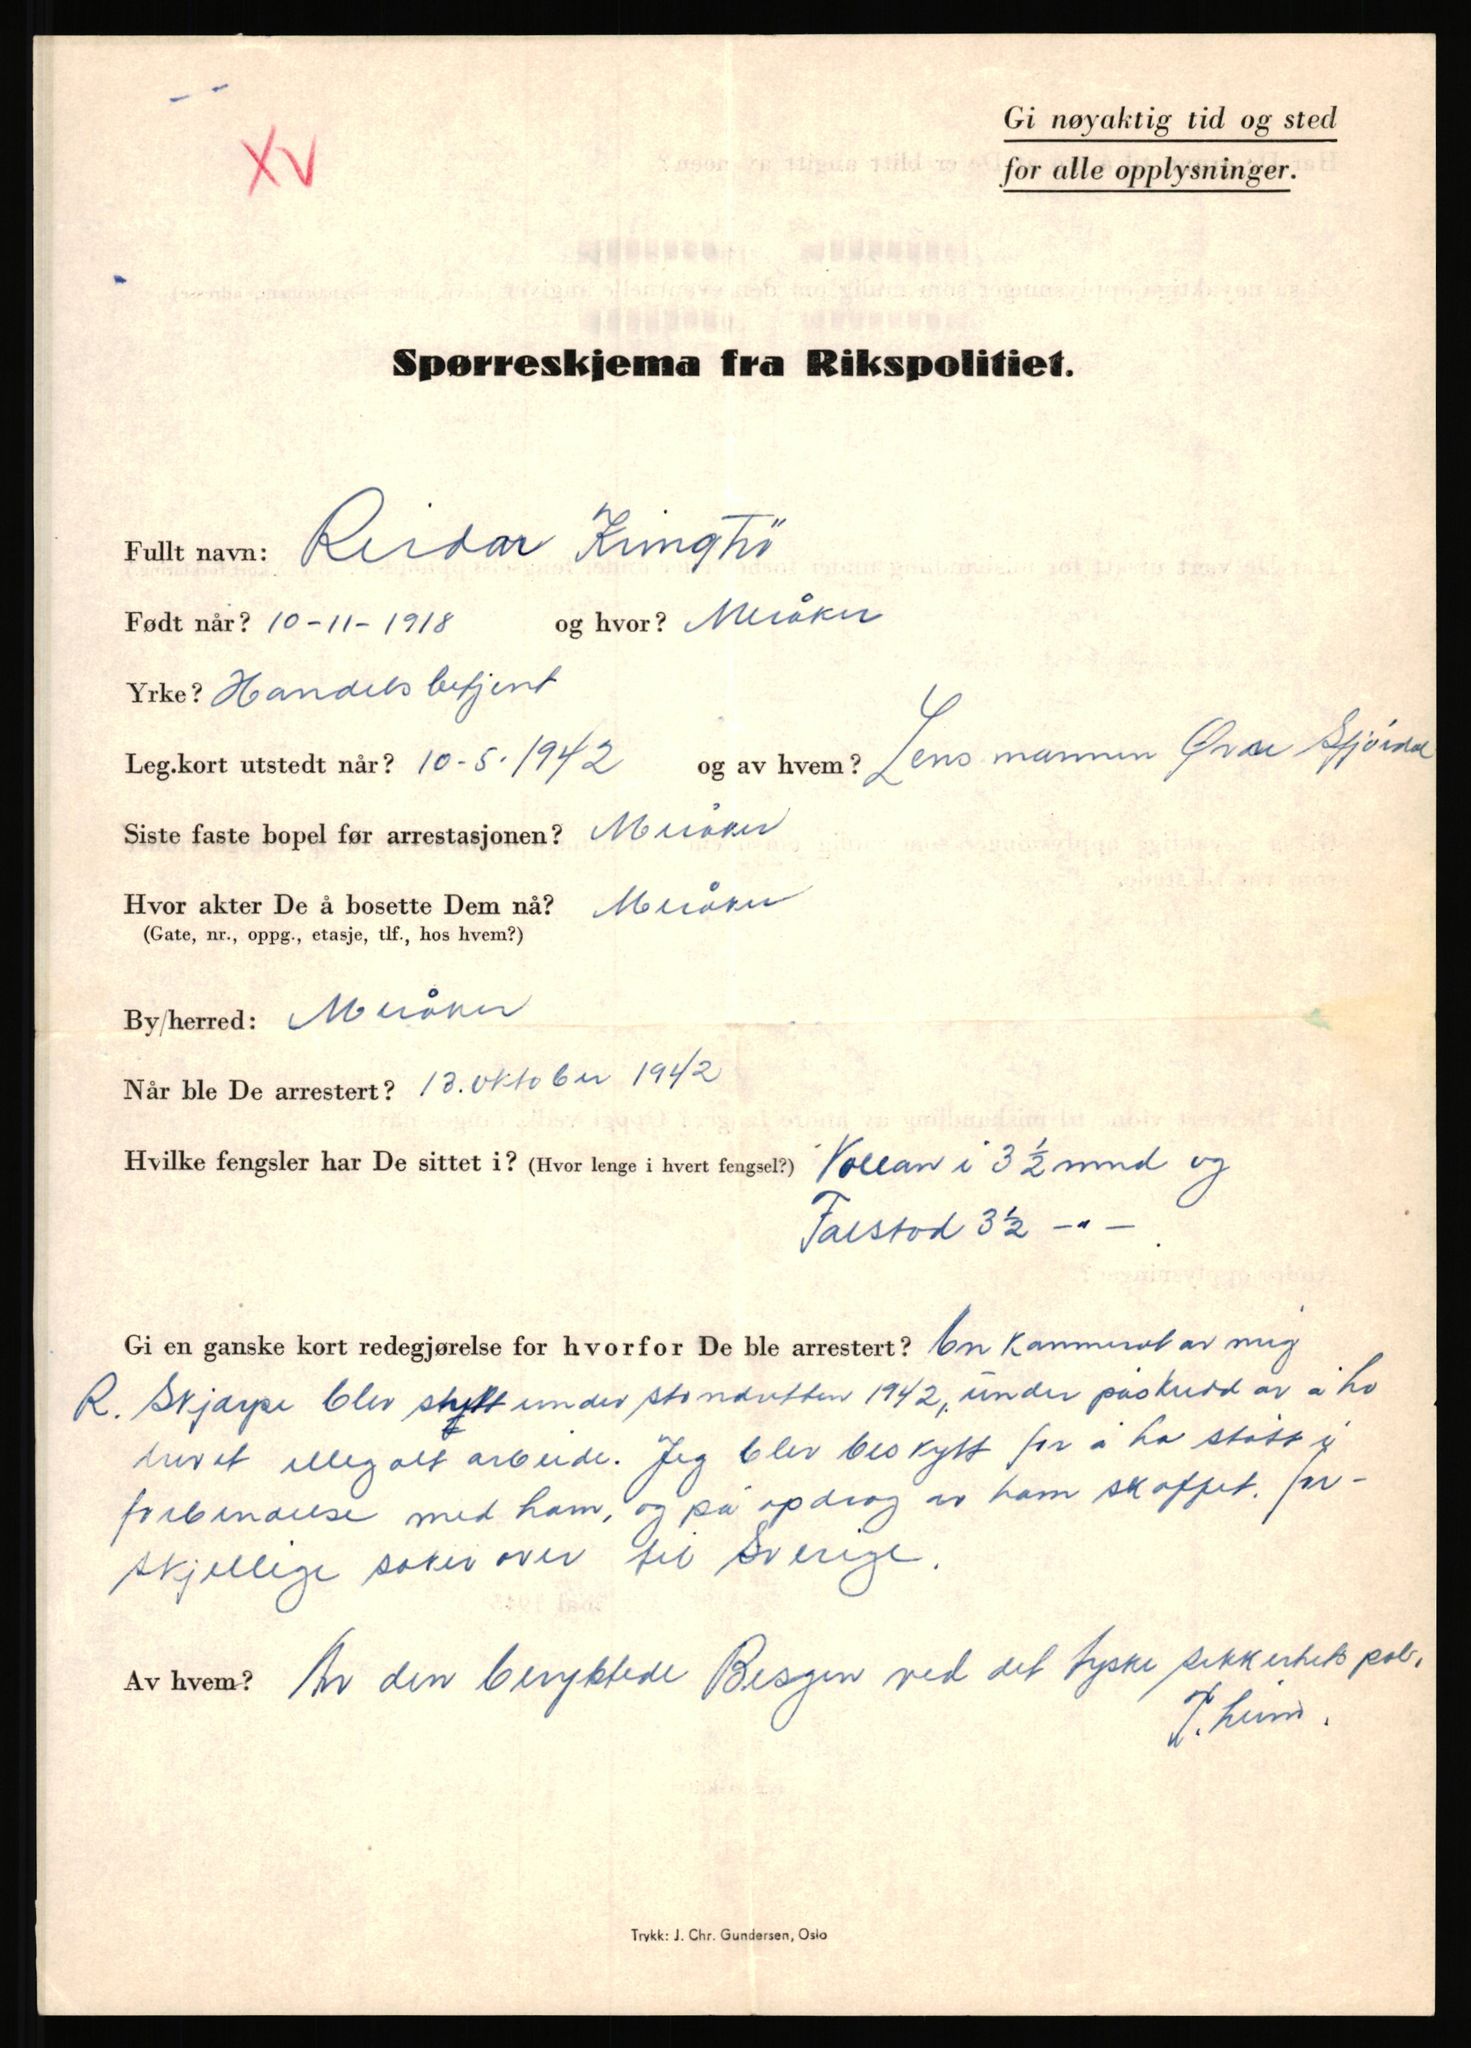 XV
Gi nøyaktig tid og sted
for alle opplysninger.
Spørreskjema fra Rikspolitiet.
Fullt navn: Reidar Kringhö
Født når? 10-11-1918 og hvor? Meråker
Yrke? Handelsbetjent
Leg.kort utstedt når? 10-5-1942 og av hvem? Lensmannen Øvre Stjördal
Siste faste bopel før arrestasjonen? Meråker
Hvor akter De å bosette Dem nå? Meråker
(Gate, nr., oppg., etasje, tlf., hos hvem?)
By/herred: Meråker
Når ble De arrestert? 13. oktober 1942
Hvilke fengsler har De sittet i? (Hvor lenge i hvert fengsel?) Vollan i 3 ½ mnd og
Falstad 3 ½ -"-
Gi en ganske kort redegjørelse for hvorfor De ble arrestert? En kammerat av mig
R. Skjarpe blev skutt under standretten 1942, under påskudd av å ha
drevet illegalt arbeide. Jeg blev beskyltt for å ha stått i
forbindelse med ham, og på opdrag av ham skaffet for-
skjellige saker over til Sverige.
Av hvem? Av den beryktede Besgen ved det tyske sikkerhets poli.
T.heim.
Trykk: J. Chr. Gundersen, Oslo